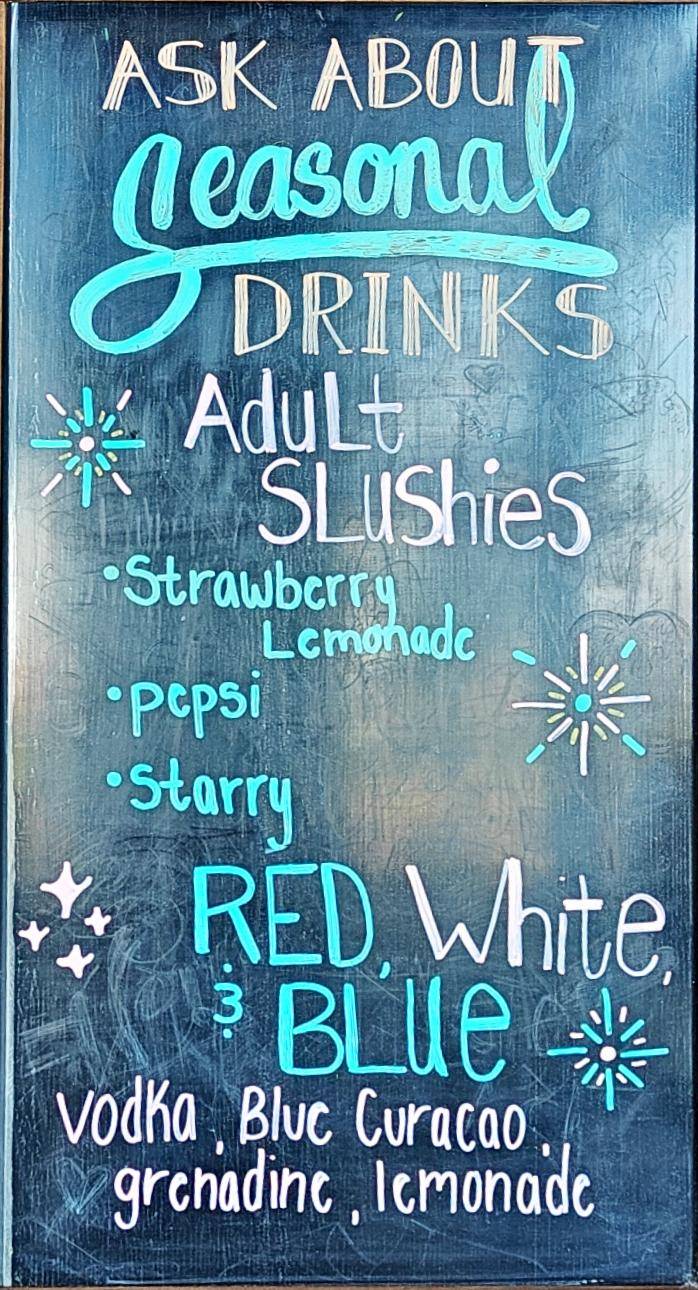 ASK ABOUT
Seasonal
DRINKS
Adult
SLUShies
•Strawberry
Lemonade
•pepsi
•starry
RED, White,
& BLue
Vodka, Blue Curacao,
grenadine, lemonade